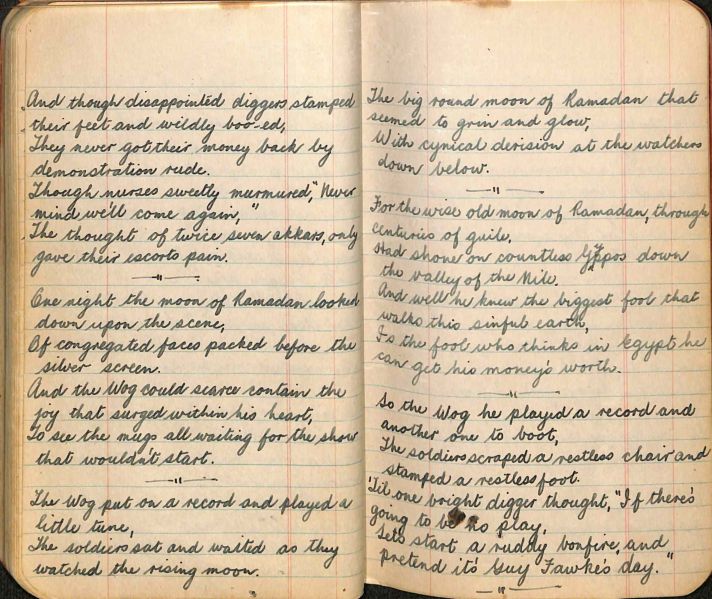 And though disappointed diggers stamped
their feet and wildly boo-ed,
They never got their money back by
demonstration rude.
Though nurses sweetly murmured, "Never
mind we'll come again,"
The thought of twice seven akkars, only
gave their escorts pain.
One night the moon of Ramadan looked
down upon the scene,
Of congregated faces packed before the
silver screen.
And the Wog could scarce contain the
joy that surged within his heart,
To see the mugs all waiting for the show
that wouldn't start.
The Wog put on a record and played a
little tune,
The soldiers sat and waited as they
watched the rising moon.
The big round moon of Ramadan that
seemed to grin and glow,
With cynical derision at the watchers
down below.
For the wise old moon of Ramadan, through
centuries of guile,
Had shone on countless Gyppos down
the valley of the Nile.
And well he knew the biggest fool that
walks this sinful earth,
Is the fool who thinks in Egypt he
can get his money's worth.
So the Wog he played a record and
another one to boot,
The soldiers scraped a restless chair and
stamped a restless foot.
'Til one bright digger thought, "If there's
going to be no play,
Let's start a ruddy bonfire, and
pretend it's Guy Fawke's day."